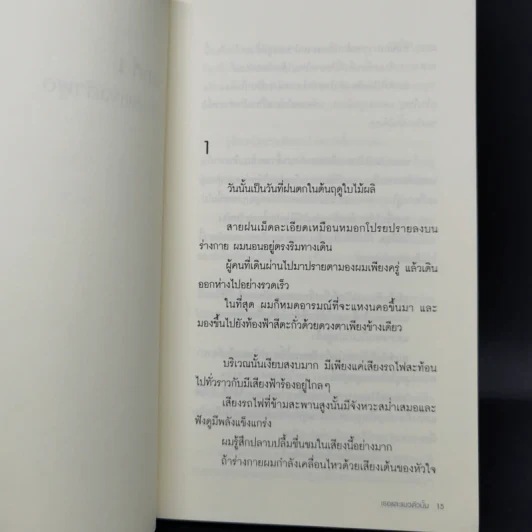 1
วันนั้นเป็นวันที่ฝนตกในต้นฤดูใบไม้ผลิ
สายฝนเม็ดละเอียดเหมือนหมอกโปรยปรายลงบน
ร่างกาย ผมนอนอยู่ตรงริมทางเดิน
ผู้คนที่เดินผ่านไปมาปรายตามองผมเพียงครู่ แล้วเดิน
ออกห่างไปอย่างรวดเร็ว
ในที่สุด ผมก็หมดอารมณ์ที่จะแหงนคอขึ้นมา และ
มองขึ้นไปยังท้องฟ้าสีตะกั่วด้วยดวงตาเพียงข้างเดียว
บริเวณนั้นเงียบสงบมาก มีเพียงแค่เสียงรถไฟสะท้อน
ไปทั่วราวกับมีเสียงฟ้าร้องอยู่ไกลๆ
เสียงรถไฟที่ข้ามสะพานสูงนั้นมีจังหวะสม่ำเสมอและ
ฟังดูมีพลังแข็งแกร่ง
ผมรู้สึกปลาบปลื้มชื่นชมในเสียงนี้อย่างมาก
ถ้าร่างกายผมกำลังเคลื่อนไหวด้วยเสียงเต้นของหัวใจ
เธอและแมวตัวนั้น 15